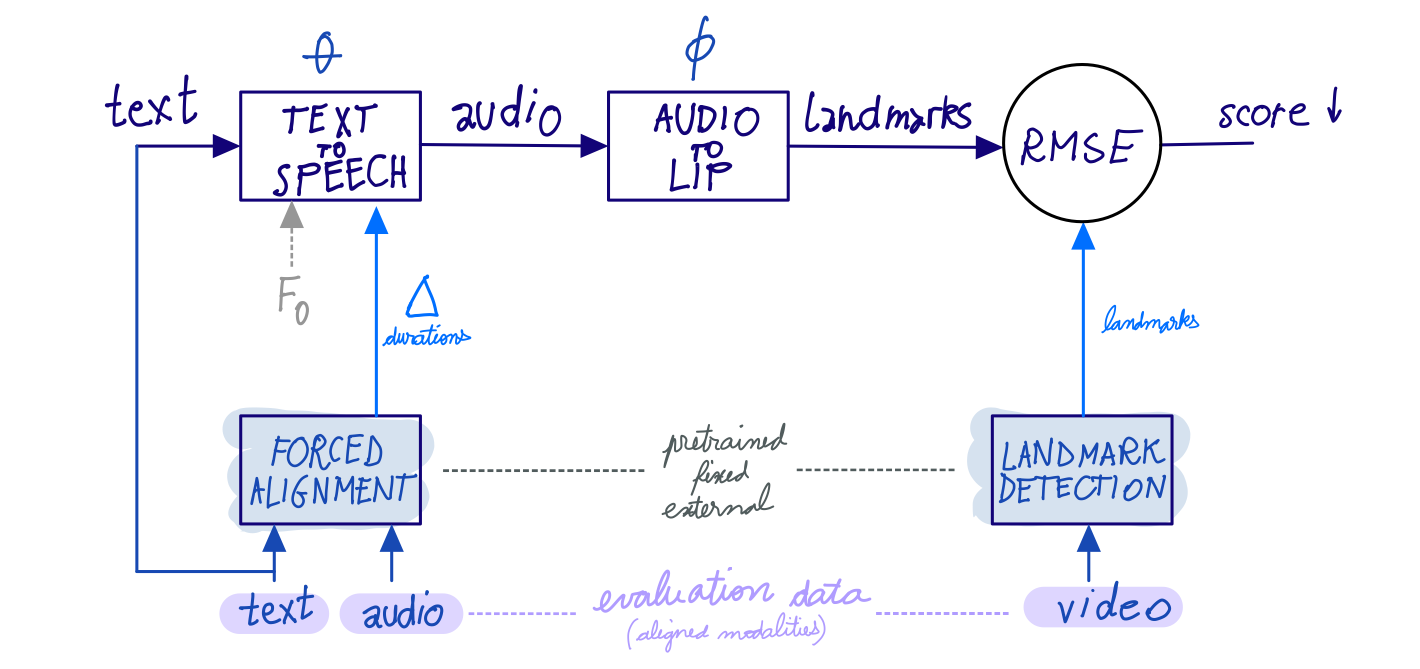 θ
ϕ
text
TEXT
TO
SPEECH
audio
AUDIO
TO
LIP
landmarks
RMSE
score ↓
F₀
Δ
durations
landmarks
FORCED
ALIGNMENT
pretrained
fixed
external
LANDMARK
DETECTION
text
audio
evaluation data
(aligned modalities)
video